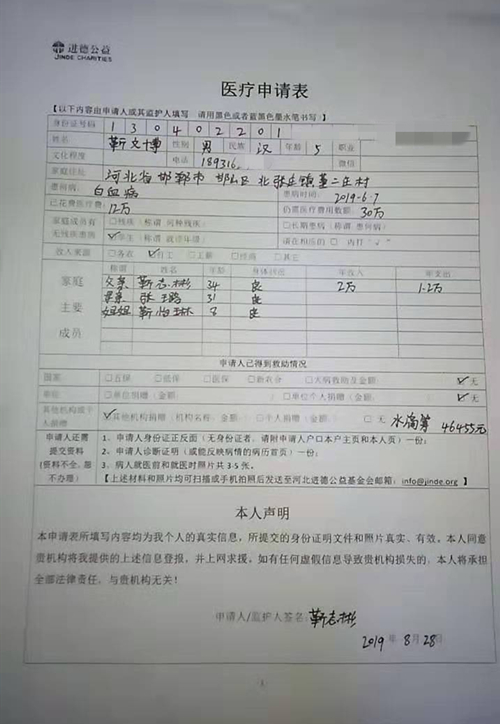 进德公益
JINDE CHARITIES
医疗申请表
【以下内容由申请人或其监护人填写 请用黑色或者蓝黑色墨水笔书写】
身份证号码 1 3 0 4 0 2 2 0 1
姓名 靳文博 性别 男 民族 汉 年龄 5 职业
文化程度 电话 189316 微信
家庭住址 河北省邯郸市 邯山区 北张庄镇 董二庄村
患何病 白血病 患病时间 2019-6-7
已花费医疗费 12万 仍需医疗费用数额 30万
家庭成员有无残疾患病 □残疾(称谓 何种残疾) □长期患病(称谓 患何病)
学生(称谓 就读年级) 请在相应的 □ 内打"√"
收入来源 □务农 打工 □工薪 □经商 □其它
家庭主要成员 称谓 姓名 年龄 身体状况 年收入 年支出
父亲 靳志彬 34 良 2万 1.2万
母亲 张 31 良
姐姐 靳怡琳 8 良
申请人已得到救助情况
国家 □五保 □低保 □医保 □新农合 □大病救助及金额 √无
单位 □单位捐赠(金额) □单位个人捐赠(金额) √无
其他机构或个人捐赠 √其他机构捐赠(机构名称、金额) □个人捐赠(金额) □无 水滴筹 46455元
申请人还需提交资料(资料不全,恕不办理)
1、申请人身份证正反面(无身份证者,请附申请人户口本户主页和本人页)一份;
2、申请人诊断证明(或能反映病情的病历首页)一份;
3、病人就医前和就医时照片共3-5张。
【上述材料和照片均可扫描或手机拍照后发送至河北进德公益基金会邮箱:info@jinde.org】
本人声明
本申请表所填写内容均为我个人的真实信息,所提交的身份证明文件和照片真实、有效。本人同意
贵机构将我提供的上述信息登报,并上网求援。如有任何虚假信息导致贵机构损失的,本人将承担
全部法律责任,与贵机构无关!
申请人/监护人签名:靳志彬
2019 年 8 月 28 日